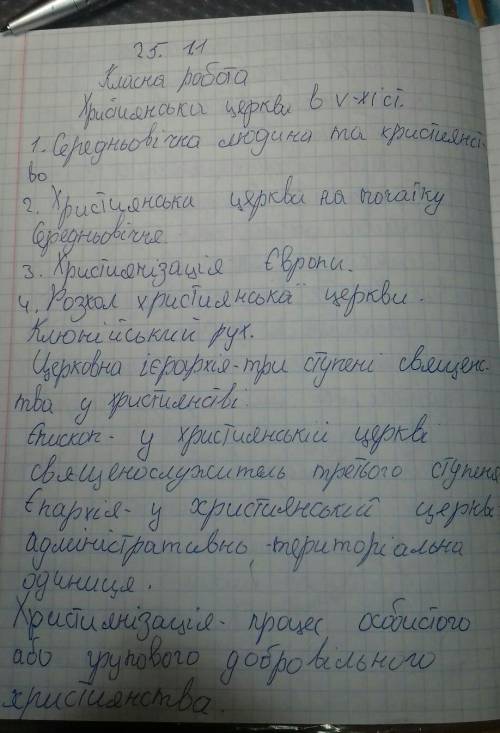 25. 11
Класна робота
Християнська церква в V-XI ст.
1. Середньовічна людина та християнст-
во
2. Християнська церква на початку
Середньовіччя.
3. Християнізація Європи.
4. Розкол християнської церкви.
Клюнійський рух.
Церковна ієрархія-три ступені священс-
тва у християнстві.
Єпископ- у християнській церкві
священослужитель третього ступеня
Єпархія- у християнській церкві
адміністративнь -територіальна
одиниця.
Християнізація- процес особистого
або групового добровільного
християнства.